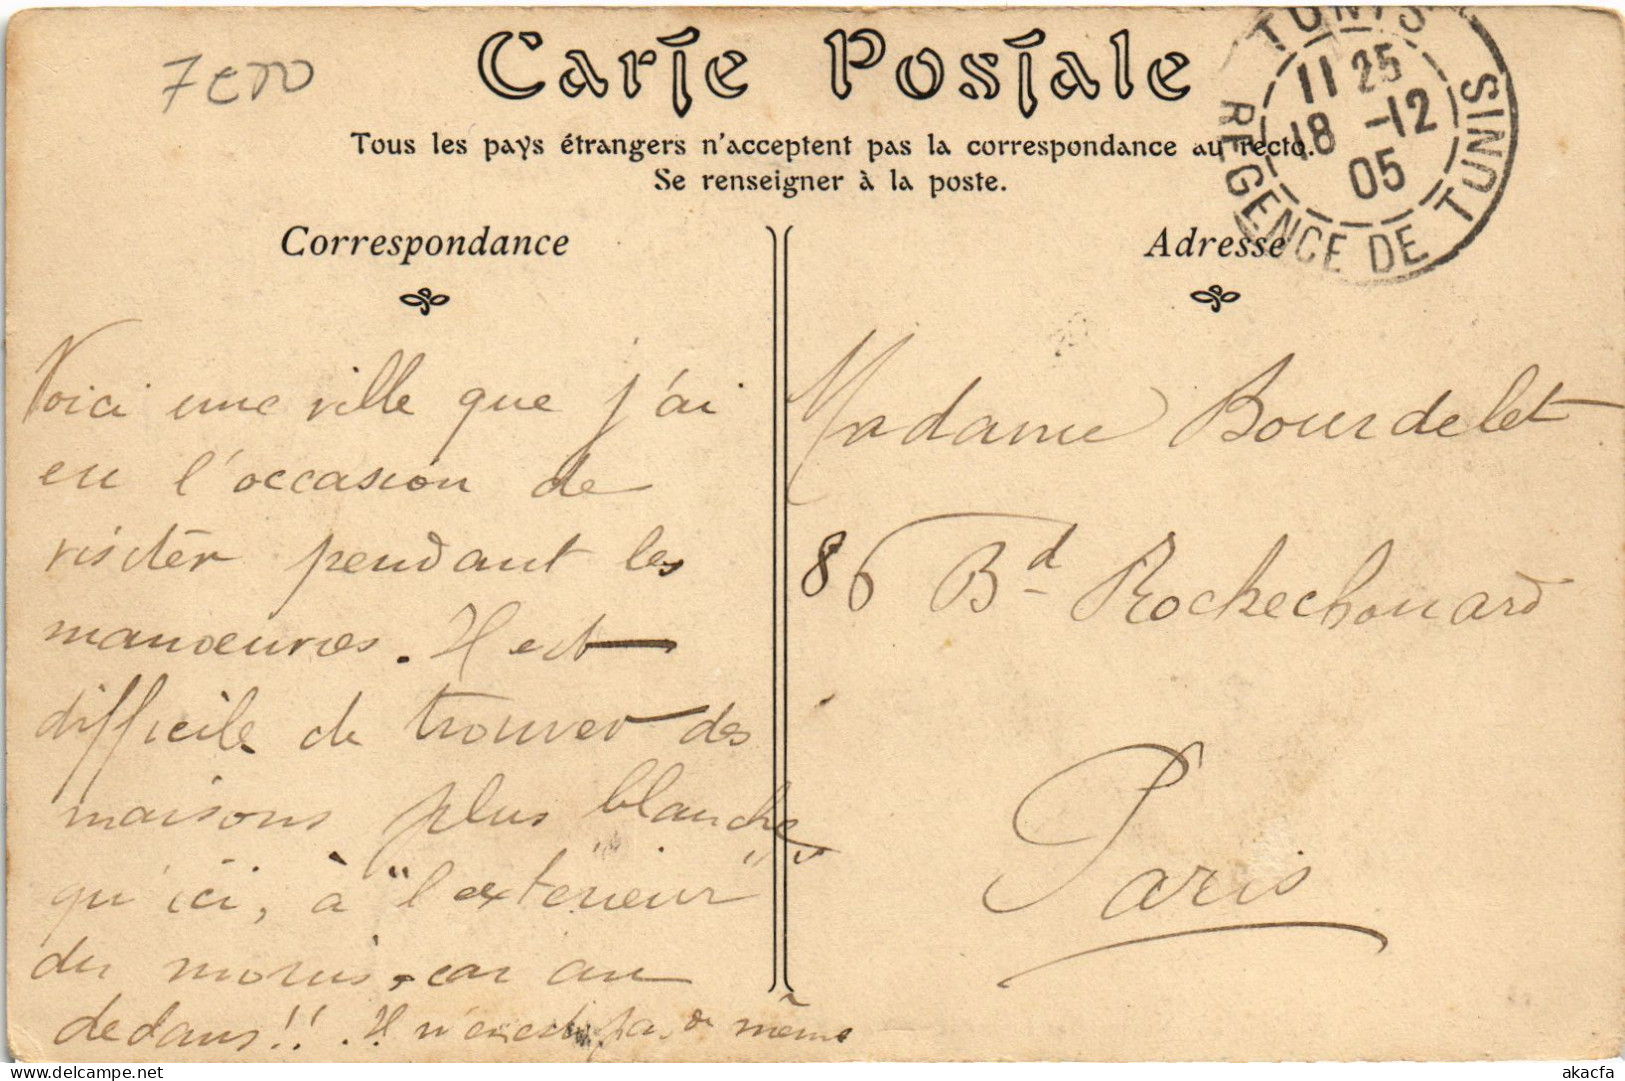 Carte Postale
Tous les pays étrangers n'acceptent pas la correspondance au recto.
Se renseigner à la poste.
TUNIS
11 25
18 -12
05
REGENCE DE TUNIS
Correspondance
Voici une ville que j'ai
eu l'occasion de
visiter pendant les
manoeuvres. Il est
difficile de trouver des
maisons plus blanches
qu'ici, à "l'extérieur"
du moins, car au
dedans!!. Il n'en est pas de même
Adresse
Madame Bourdelet
86 Bd Rochechouard
Paris
delcampe.net
akacfa